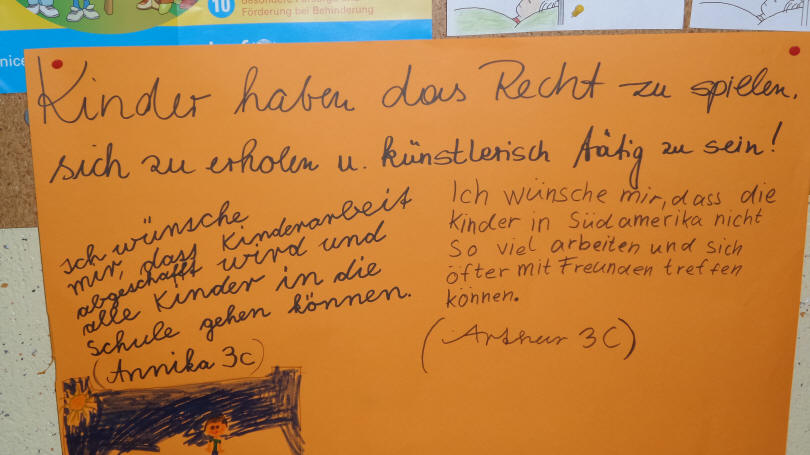 10
Förderung bei Behinderung
Kinder haben das Recht zu spielen,
sich zu erholen u. künstlerisch tätig zu sein!
Ich wünsche
mir, dass Kinderarbeit
abgeschafft wird und
alle Kinder in die
Schule gehen können.
(Annika 3c)
Ich wünsche mir, dass die
Kinder in Südamerika nicht
So viel arbeiten und sich
öfter mit Freunden treffen
können.
(Arthur 3C)